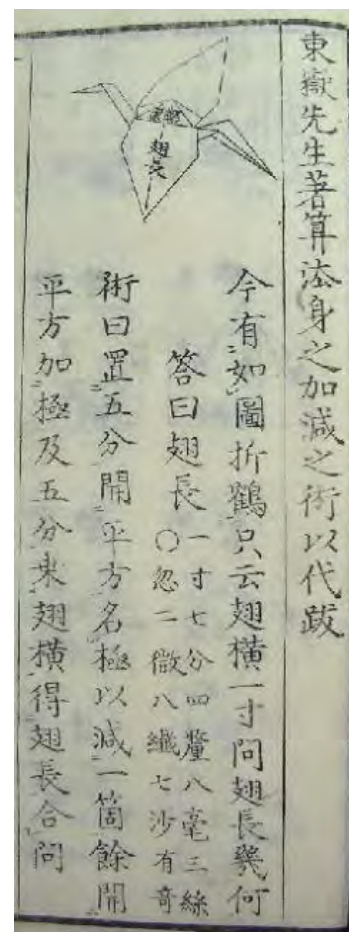 東嶽先生著算法身之加減之術以代跋
翅横
翅長
今有如圖折鶴只云翅横一寸問翅長幾何
答曰翅長
一寸七分四釐八毫三絲
〇忽二微八纖七沙有奇
術曰置五分開平方名極以減一箇餘開
平方加極及五分乗翅横得翅長合問